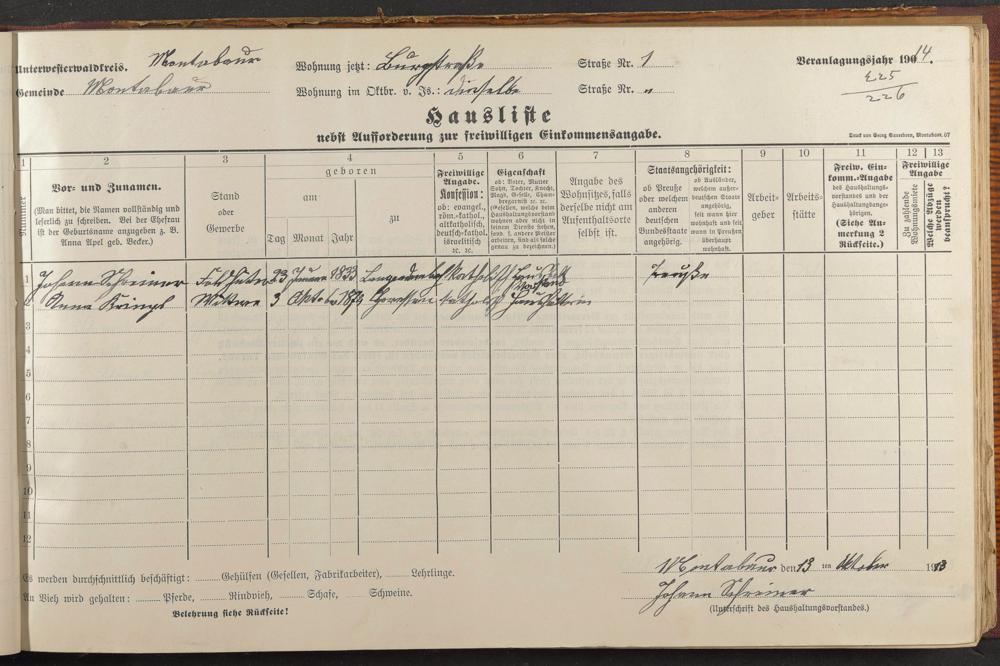 Unterwesterwaldkreis. Montabaur Wohnung jetzt: Burgstraße Straße Nr. 1 Veranlagungsjahr 1914.
Gemeinde Montabaur Wohnung im Oktbr. v. Js.: dieselbe Straße Nr. " 225
226
Hausliste
nebst Aufforderung zur freiwilligen Einkommensangabe.
Druck von Georg Sauerborn, Montabaur. 07
1 2 3 4 5 6 7 8 9 10 11 12 13
Nummer
Vor- und Zunamen.
(Man bittet, die Namen vollständig und
leserlich zu schreiben. Bei der Ehefrau
ist der Geburtsname anzugeben z. B.
Anna Apel geb. Becker.)
Stand
oder
Gewerbe
geboren
am
Tag Monat Jahr
zu
Freiwillige
Angabe.
Konfession:
ob: evangel.,
röm.-kathol.,
altkatholisch,
deutsch-kathol.
israelitisch
ec. ec.
Eigenschaft
ob: Vater, Mutter
Sohn, Tochter, Knecht,
Magd, Geselle, Cham-
bregarnist ec. ec.
(Gesellen, welche beim
Haushaltungsvorstand
wohnen oder nicht in
seinem Dienste stehen,
sond. f. andere Meister
arbeiten, sind als solche
genau zu bezeichnen.)
Angabe des
Wohnsitzes, falls
derselbe nicht am
Aufenthaltsorte
selbst ist.
Staatsangehörigkeit:
ob Preuße
oder welchem
anderen
deutschen
Bundesstaate
angehörig.
ob Ausländer,
welchem außer-
deutschen Staate
angehörig,
seit wann hier
wohnhaft und seit
wann in Preußen
überhaupt
wohnhaft.
Arbeit-
geber
Arbeits-
stätte
Freiw. Ein-
komm.-Angabe
des Haushaltungs-
vorstandes und der
Haushaltungsange-
hörigen.
(Siehe An-
merkung 2
Rückseite.)
Freiwillige
Angabe
Zu zahlende
Wohnungsmiete
Welche Abzüge
werden
beansprucht?
1 Johann Schreiner Feldhüter 23 Januar 1833 katholisch Haushalt
vorstand Preuße
Anna Wittwe 3 Oktober 1874 katholisch Haushälterin
3
4
5
6
7
8
9
10
11
12
Es werden durchschnittlich beschäftigt: Gehülfen (Gesellen, Fabrikarbeiter), Lehrlinge.
An Vieh wird gehalten: Pferde, Rindvieh, Schafe, Schweine.
Belehrung siehe Rückseite!
Montabaur den 13 ten Oktober 1913
Johann Schreiner
(Unterschrift des Haushaltungsvorstandes.)